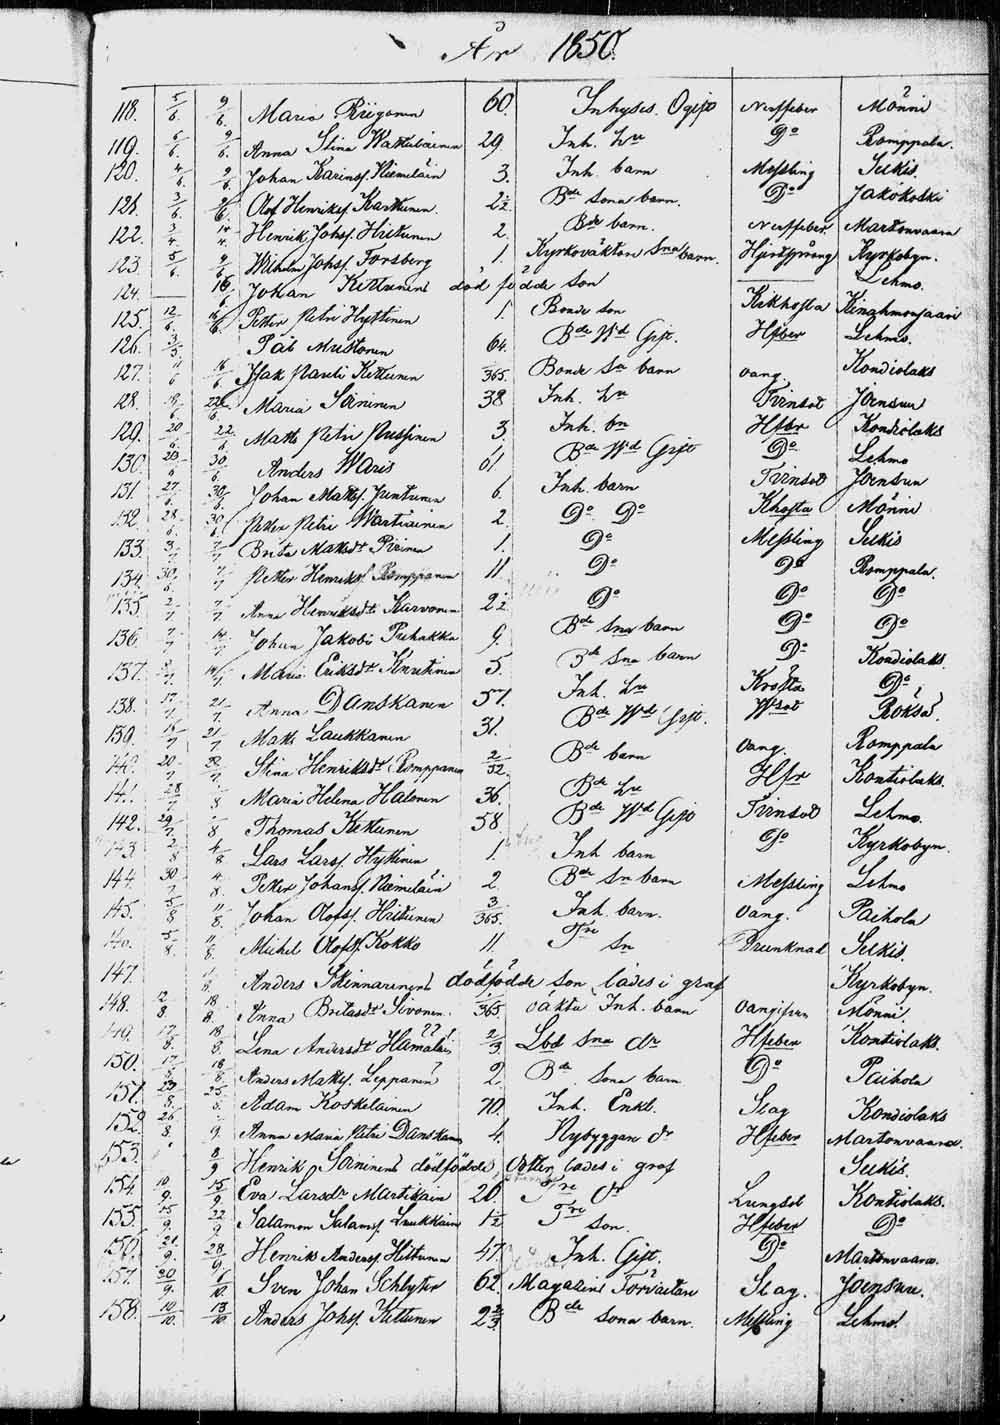 År 1850.
118. 5/6. 9/6. Maria Riigonen 60. Inhyses. Ogift Nerffeber Mönni
119. 6/6. 9/6. Anna Stina 29. Inh. hu Do Romppala.
120. 4/6. 9/6. Johan Karinsf. Niemeläin 3. Inh. barn Messling Selkis.
121. 3/6. 9/6. Olof Henriksf. Karttunen. 2 1/2 Bde sona barn. Do Jakokoski
122. 3/4. 14/4. Henrik Johsf. Hiltunen 2. Bde barn. Nerffeber Martonvaara
123. 5/6. 9/6. Wilhelm Johsf. Forsberg 1. Kyrkoväktare Sna barn. Kyrkobyn.
124. — 16/6 Johan Kettunens död födde son Lehmo.
125. 12/6. 16/6 Petter Petri Hyttinen 1. Bonde son Kikhosta
126. 3/5. Pål Mustonen 64. Bde Wd Gift. Hfeber Lehmo.
127. 11/6 16/6 Isak Pauli Kettunen /365. Bonde Sn barn oang. Kondiolaks
128. 18/6 22/6. Maria Sorninen 38 Inh. hu Tvinsot Joensuu
129. 20/6. 22/6. Matts Petri Pussinen 3. Inh. bn Hfber Kondiolaks
130. 23/6 30/6. Anders Waris 61 Bde Wd Gift Do Lehmo
131. 27/6. 30/6. Johan Mattsf. Juntunen 6. Inh. barn Tvinsot Joensuu
132. 28/6. 30/6. Petter Petri Wartiainen 2. Do Do Khosta Mönni
133. 3/7 7/7 Brita Matsdr Piirinen 1. Do Messling Selkis
134. 30/6. 7/7 Petter Henriksf. Romppanen 11 Do Do Romppala.
135. 2/7. 7/7. Anna Henriksdr Karvonen 2 1/2 Do Do Do
136. 7/7 14/7. Johan Jakobi Puhakka 9. Bde Sna barn Do Do
137. 14/7 Maria Eriksdr Knuttinen 5. Bde Sna barn Do Kondiolaks.
138. 17/7 21/7. Anna Danskanen 57. Inh. hu Do
139. 16/7 21/7 Matts Laukkanen 31. Bde Wd Gift. Wtsot
140. 20/7 Stina Henriksdr Romppanen 2/52. Bde barn oang. Romppala
141. 28/7 /8 Maria Helena Halonen 36. Bde hu Hfr Kontiolaks.
142. 29/7. /8 Thomas Kettunen 58. Bde Wd Gift Tvinsot Lehmo.
143. 2/8 4/8 Lars Larsf. Hyttinen 1. Inh barn Do Kyrkobyn.
144. 30/7 4/8. Petter Johansf. Niemeläin 2. Bde Sn barn Messling Lehmo
145. 5/8 11/8. Johan Olofsf. Hiltunen 3/365. Inh. barn. oang. Paihola
146. 5/8. 11/8. Michel Olofsf. Kokko 11. Tre sn Drunknad Selkis.
147. Anders Kinnarinens dödfödde son lades i graf Kyrkobyn.
148. 12/8. 18/8. Anna Britasdr Sivonen. /365. oäkta Inh. barn oangifven Mönni.
149. 17/8. 18/8. Lena Andersdr Hämäläin 2/3 Lbd Sna dr Hfeber Kontiolaks.
150. 17/8 18/8 Anders Mattsf. Leppänen 2. Bde Sona barn Do Paihola
151. 23/8. 25/8. Adam Koskelainen 70. Inh. Enkl. Slag Kondiolaks
152. 26/8. Anna Maria Petri Danskanen 4. Nybyggare dr Hfeber Martonvaara.
153. 8/9 Henrik Sorninens dödfödde dotter lades i graf Selkis.
154. 10/9. 15/9 Eva Larsdr Martikain 26. Tre dr Lungsot Kontiolaks.
155. 15/9. 22/9 Salamon Salamsf. Laukkain 1 1/2 Tre son. Hfeber Do
156. 21/9. 28/9. Henrik Andersf. Hiltunen 47. Inh. Gift. Do Martonvaara.
157. 30/9. 6/10 Sven Johan Schlyter 62. Magazins Förvaltare Slag. Joensuu.
158. 10/10. 13/10 Anders Johsf. Kettunen 2 2/3. Bde sona barn. Messling Lehmo.